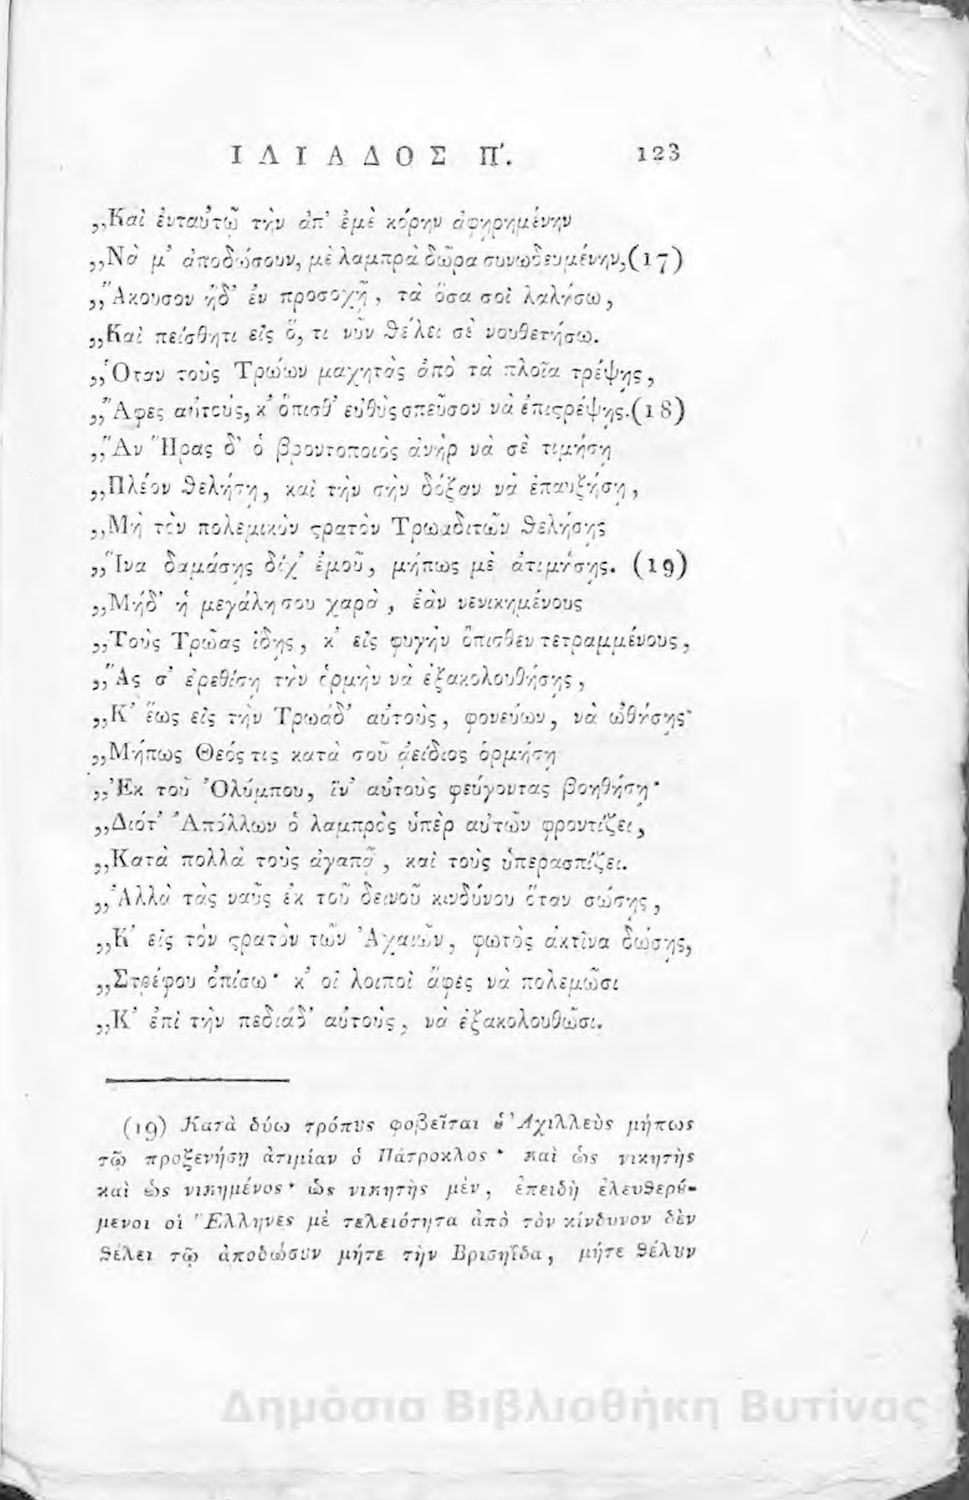 ΙΛΙΑΔΟΣ Π'. 123
„Καὶ ἐνταὐτῷ τὴν ἀπ' ἐμὲ κόρην ἀφῃρημένην
„Νὰ μ' ἀποδώσουν, μὲ λαμπρὰ δῶρα συνωδευμένην,(17)
„Ἄκουσον ἤδ' ἐν προσοχῇ, τὰ ὅσα σοὶ λαλήσω,
„Καὶ πείσθητι εἰς ὅ, τι νῦν θέλει σὲ νουθετήσω.
„Ὅταν τοὺς Τρώων μαχητὰς ἀπὸ τὰ πλοῖα τρέψῃς,
„Ἄφες αὐτοὺς, κ' ὄπισθ' εὐθὺς σπεῦσον νὰ ἐπιϛρέψῃς.(18)
„Ἂν Ἥρας δ' ὁ βροντοποιὸς ἀνὴρ νὰ σὲ τιμήσῃ
„Πλέον θελήσῃ, καὶ τὴν σὴν δόξαν νὰ ἐπαυξήσῃ,
„Μὴ τὸν πολεμικὸν ϛρατὸν Τρωαδιτῶν θελήσῃς
„Ἵνα δαμάσῃς δίχ' ἐμοῦ, μήπως μὲ ἀτιμήσῃς. (19)
„Μήδ' ἡ μεγάλη σου χαρὰ, ἐὰν νενικημένους
„Τοὺς Τρῶας ἴδῃς, κ' εἰς φυγὴν ὄπισθεν τετραμμένους,
„Ἂς σ' ἐρεθίσῃ τὴν ὁρμὴν νὰ ἐξακολουθήσῃς,
„Κ' ἕως εἰς τὴν Τρωάδ' αὐτοὺς, φονεύων, νὰ ὠθήσῃς·
„Μήπως Θεός τις κατὰ σοῦ ἀείδιος ὁρμήσῃ
„Ἐκ τοῦ Ὀλύμπου, ἵν' αὐτοὺς φεύγοντας βοηθήσῃ·
„Διότ' Ἀπόλλων ὁ λαμπρὸς ὑπὲρ αὐτῶν φροντίζει,
„Κατὰ πολλὰ τοὺς ἀγαπᾷ, καὶ τοὺς ὑπερασπίζει.
„Ἀλλὰ τὰς ναῦς ἐκ τοῦ δεινοῦ κινδύνου ὅταν σώσῃς,
„Κ' εἰς τὸν ϛρατὸν τῶν Ἀχαιῶν, φωτὸς ἀκτῖνα δώσῃς,
„Στρέφου ὀπίσω· κ' οἱ λοιποὶ ἄφες νὰ πολεμῶσι
„Κ' ἐπὶ τὴν πεδιάδ' αὐτοὺς, νὰ ἐξακολουθῶσι.
(19) Κατὰ δύω τρόπȣς φοβεῖται ὁ Ἀχιλλεὺς μήπως
τῷ προξενήσῃ ἀτιμίαν ὁ Πάτροκλος· καὶ ὡς νικητὴς
καὶ ὡς νικημένος· ὡς νικητὴς μὲν, ἐπειδὴ ἐλευθερȣ-
μενοι οἱ Ἕλληνες μὲ τελειότητα ἀπὸ τὸν κίνδυνον δὲν
θέλει τῷ ἀποδώσȣν μήτε τὴν Βρισηΐδα, μήτε θέλȣν
Δημόσια Βιβλιοθήκη Βυτίνας